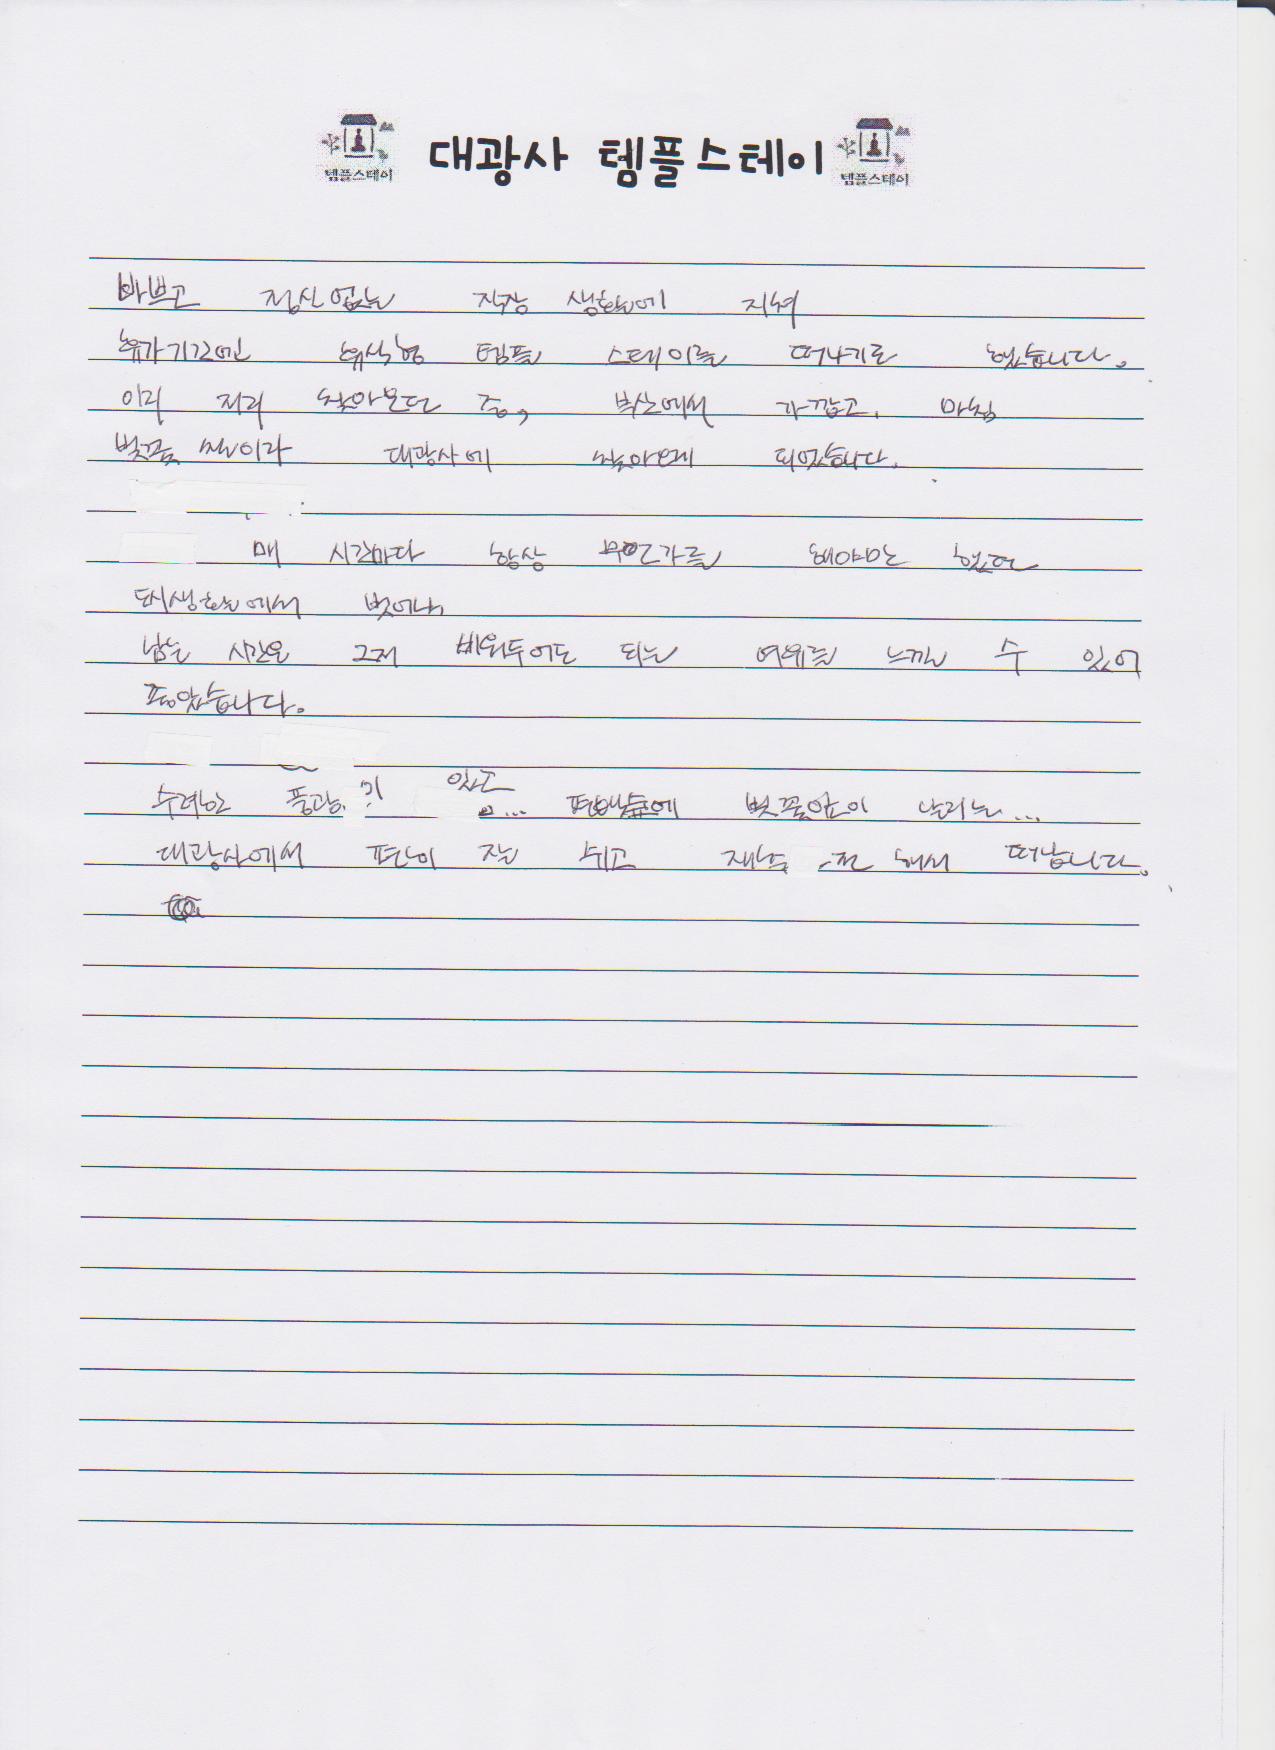 템플스테이 대광사 템플스테이 템플스테이
바쁘고 정신없는 직장 생활에 지쳐
휴가기간에 휴식형 템플 스테이를 떠나기로 했습니다.
이리 저리 찾아본던 중, 부산에서 가깝고, 마침
벚꽃 철이라 대광사에 찾아오게 되었습니다.
매 시간마다 항상 무언가를 해야만 했던
도시생활에서 벗어나,
남는 시간을 그저 비워두어도 되는 여유를 느낄 수 있어
좋았습니다.
수려한 풍광이 있고 ... 벚꽃잎이 날리는...
대광사에서 편안히 잘 쉬고 해서 떠납니다.